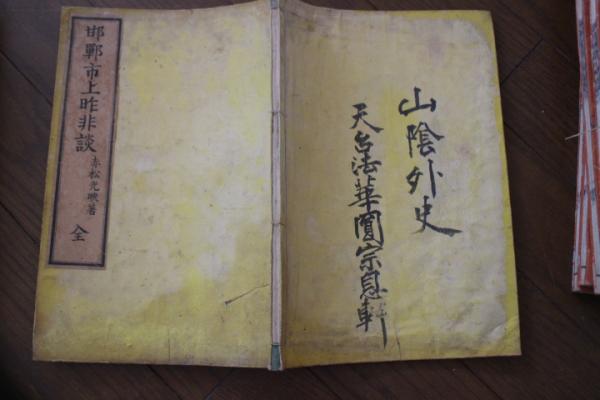 邯鄲市上昨非談
赤松光映著
全
山陰外史
天台法華圓宗息軒